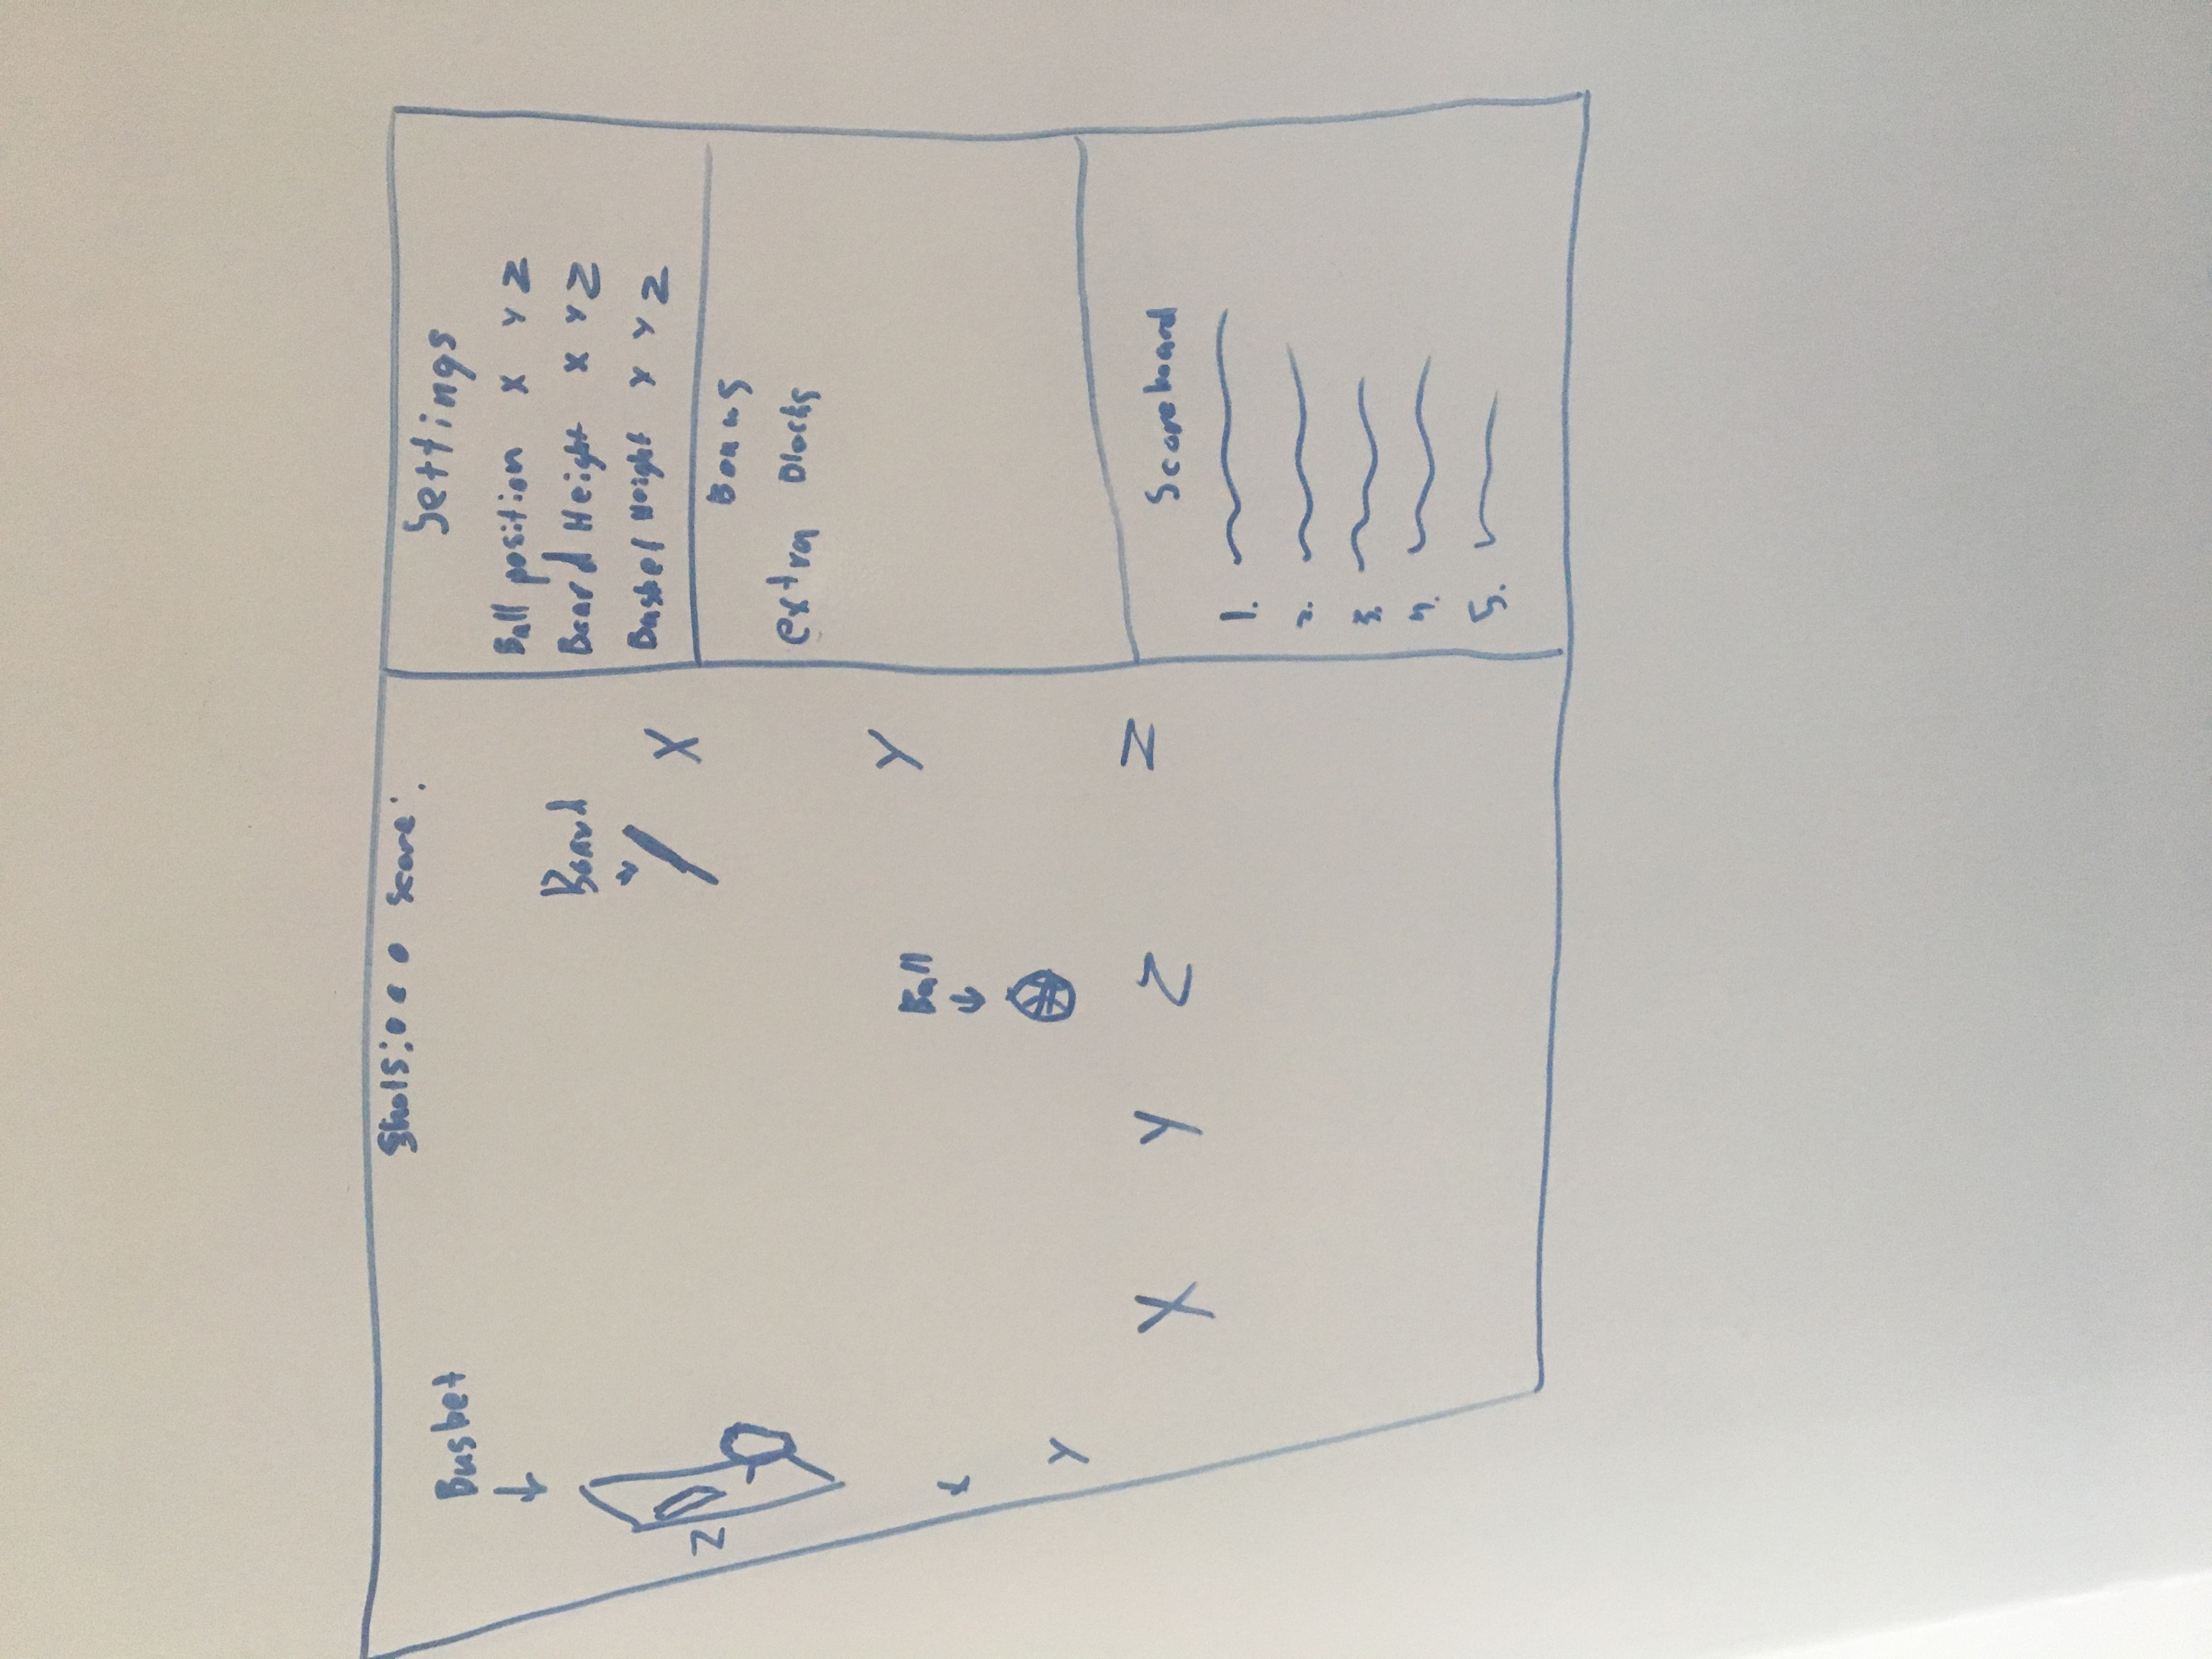 Shots: Score:
Basket
Board
Z
X
Y
Ball
X
Y
X Y Z
Z
Settings
Ball position X Y Z
Board Height X Y Z
Basket Height X Y Z
Bonus
extra Blocks
Scoreboard
1.
2.
3.
4.
5.